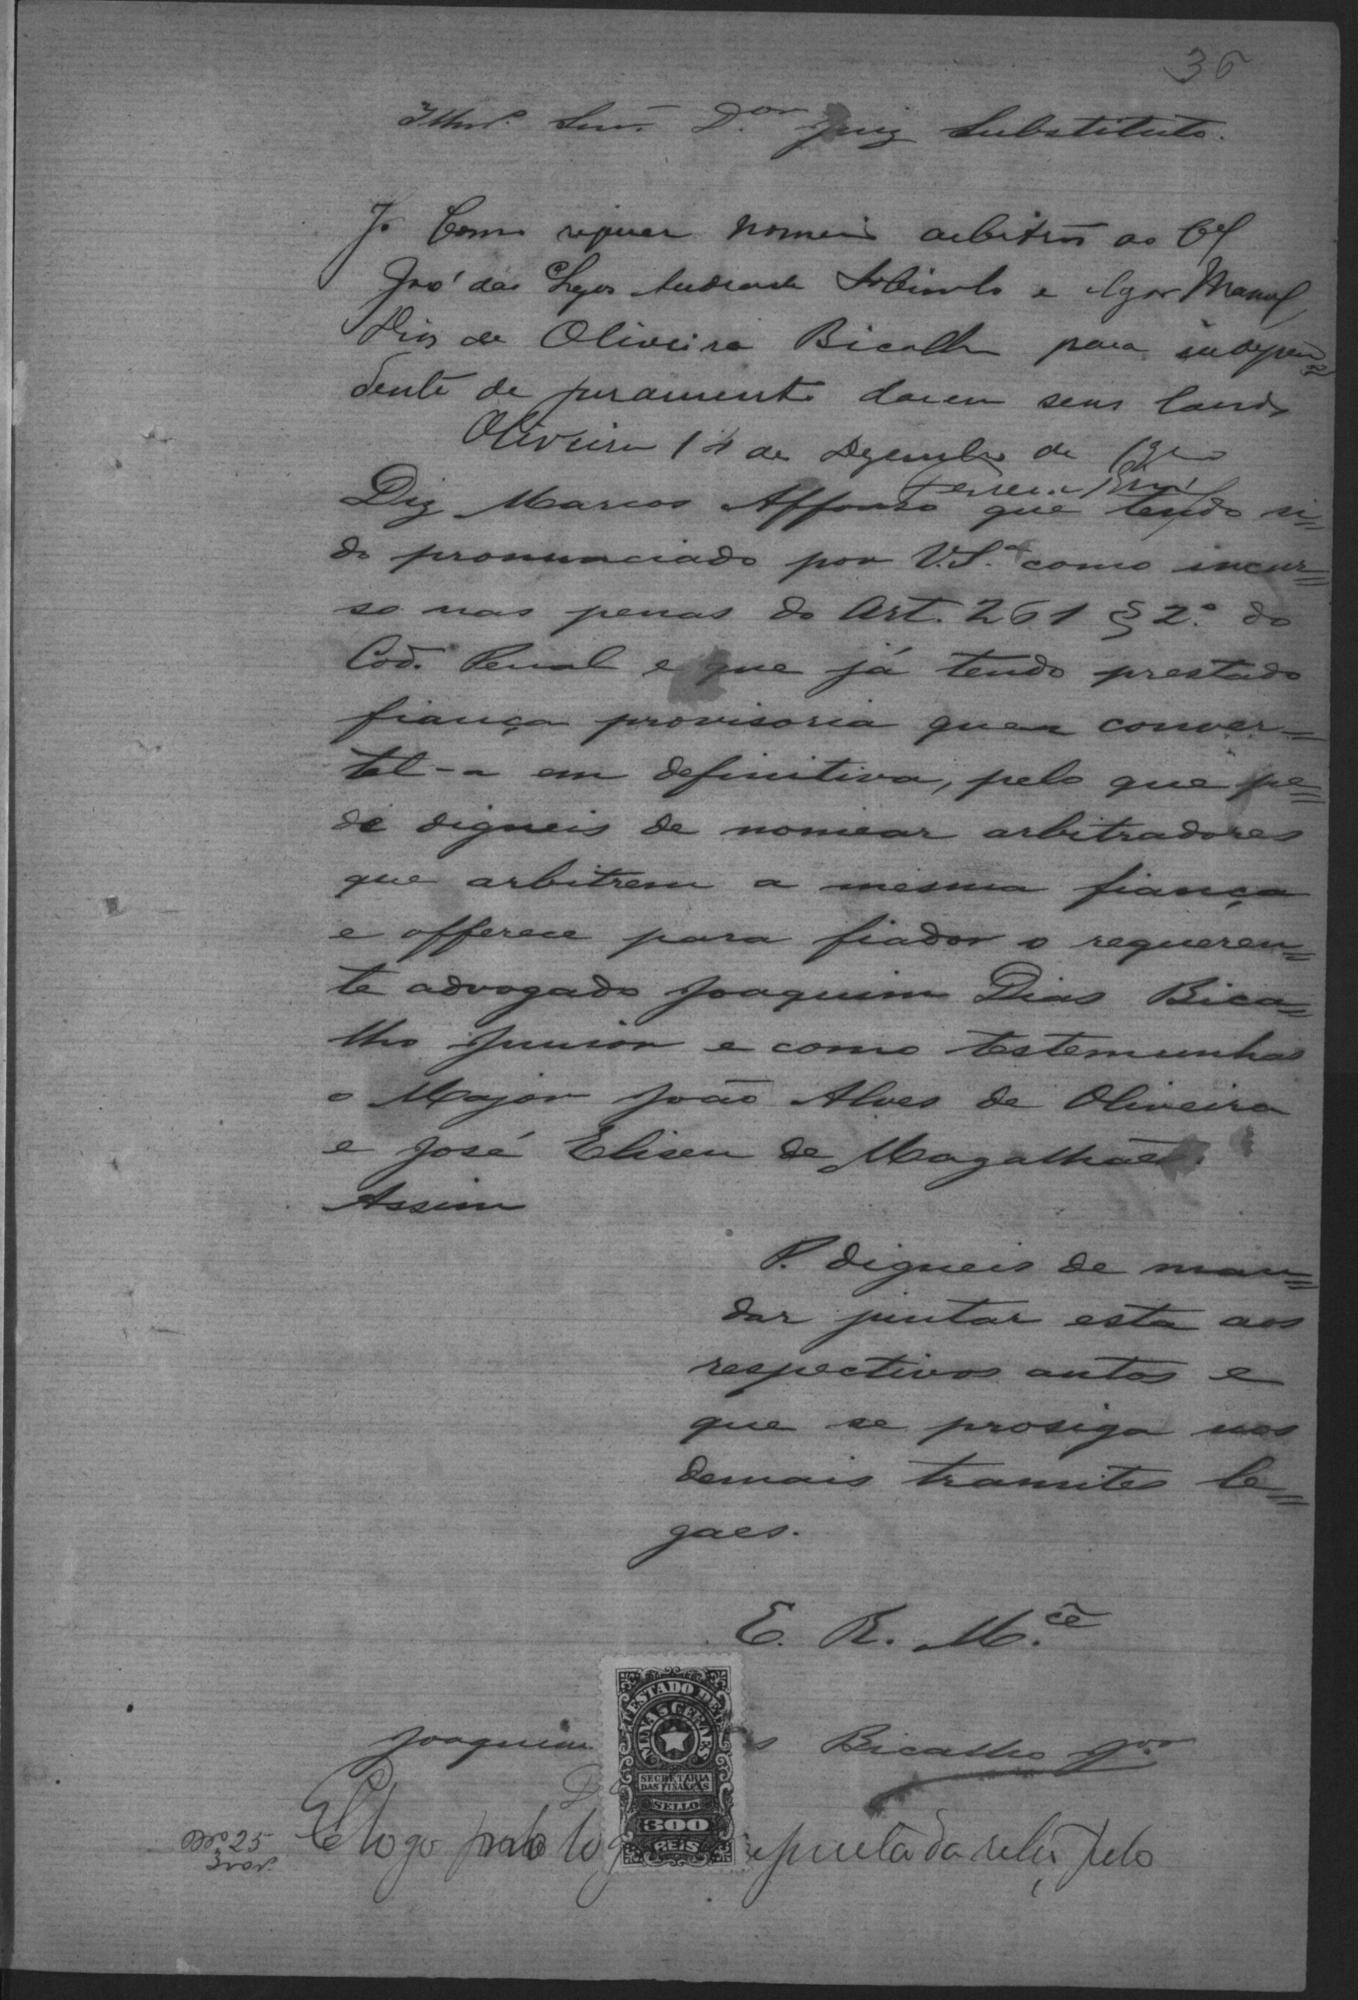 36
Illmo. Snr. Dor. Juiz Substituto.
J. Como requer nomeio arbitros ao Cel
José das Chagas Andrade Sobrinho e Agor Manoel
Dias de Oliveira Bicalho para indepen=
dente de juramento darem seus laudos
Oliveira 14 de Dezembro de
Ferreira
Diz Marcos Affonso que tendo si=
do pronunciado por V.S.a como incur=
so nas penas do Art. 261 § 2.o do
Cod. Penal e que já tendo prestado
fiança provisoria quer conver=
tel-a em definitiva, pelo que pe=
de digneis de nomear arbitradores
que arbitrem a mesma fiança
e offerece para fiador o requeren=
te advogado Joaquim Dias Bica=
lho Junior e como testemunhas
o Major João Alves de Oliveira
e José Eliseu de Magalhães.
Assim
P. digneis de man=
dar juntar esta aos
respectivos autos e
que se prosiga nos
demais tramites le=
gaes.
E. R. M.ce
ESTADO DE
MINAS GERAES
SECRETARIA
DAS FINANÇAS
SELLO
300
REIS
Joaquim s Bicalho Jor
No 25
E logo